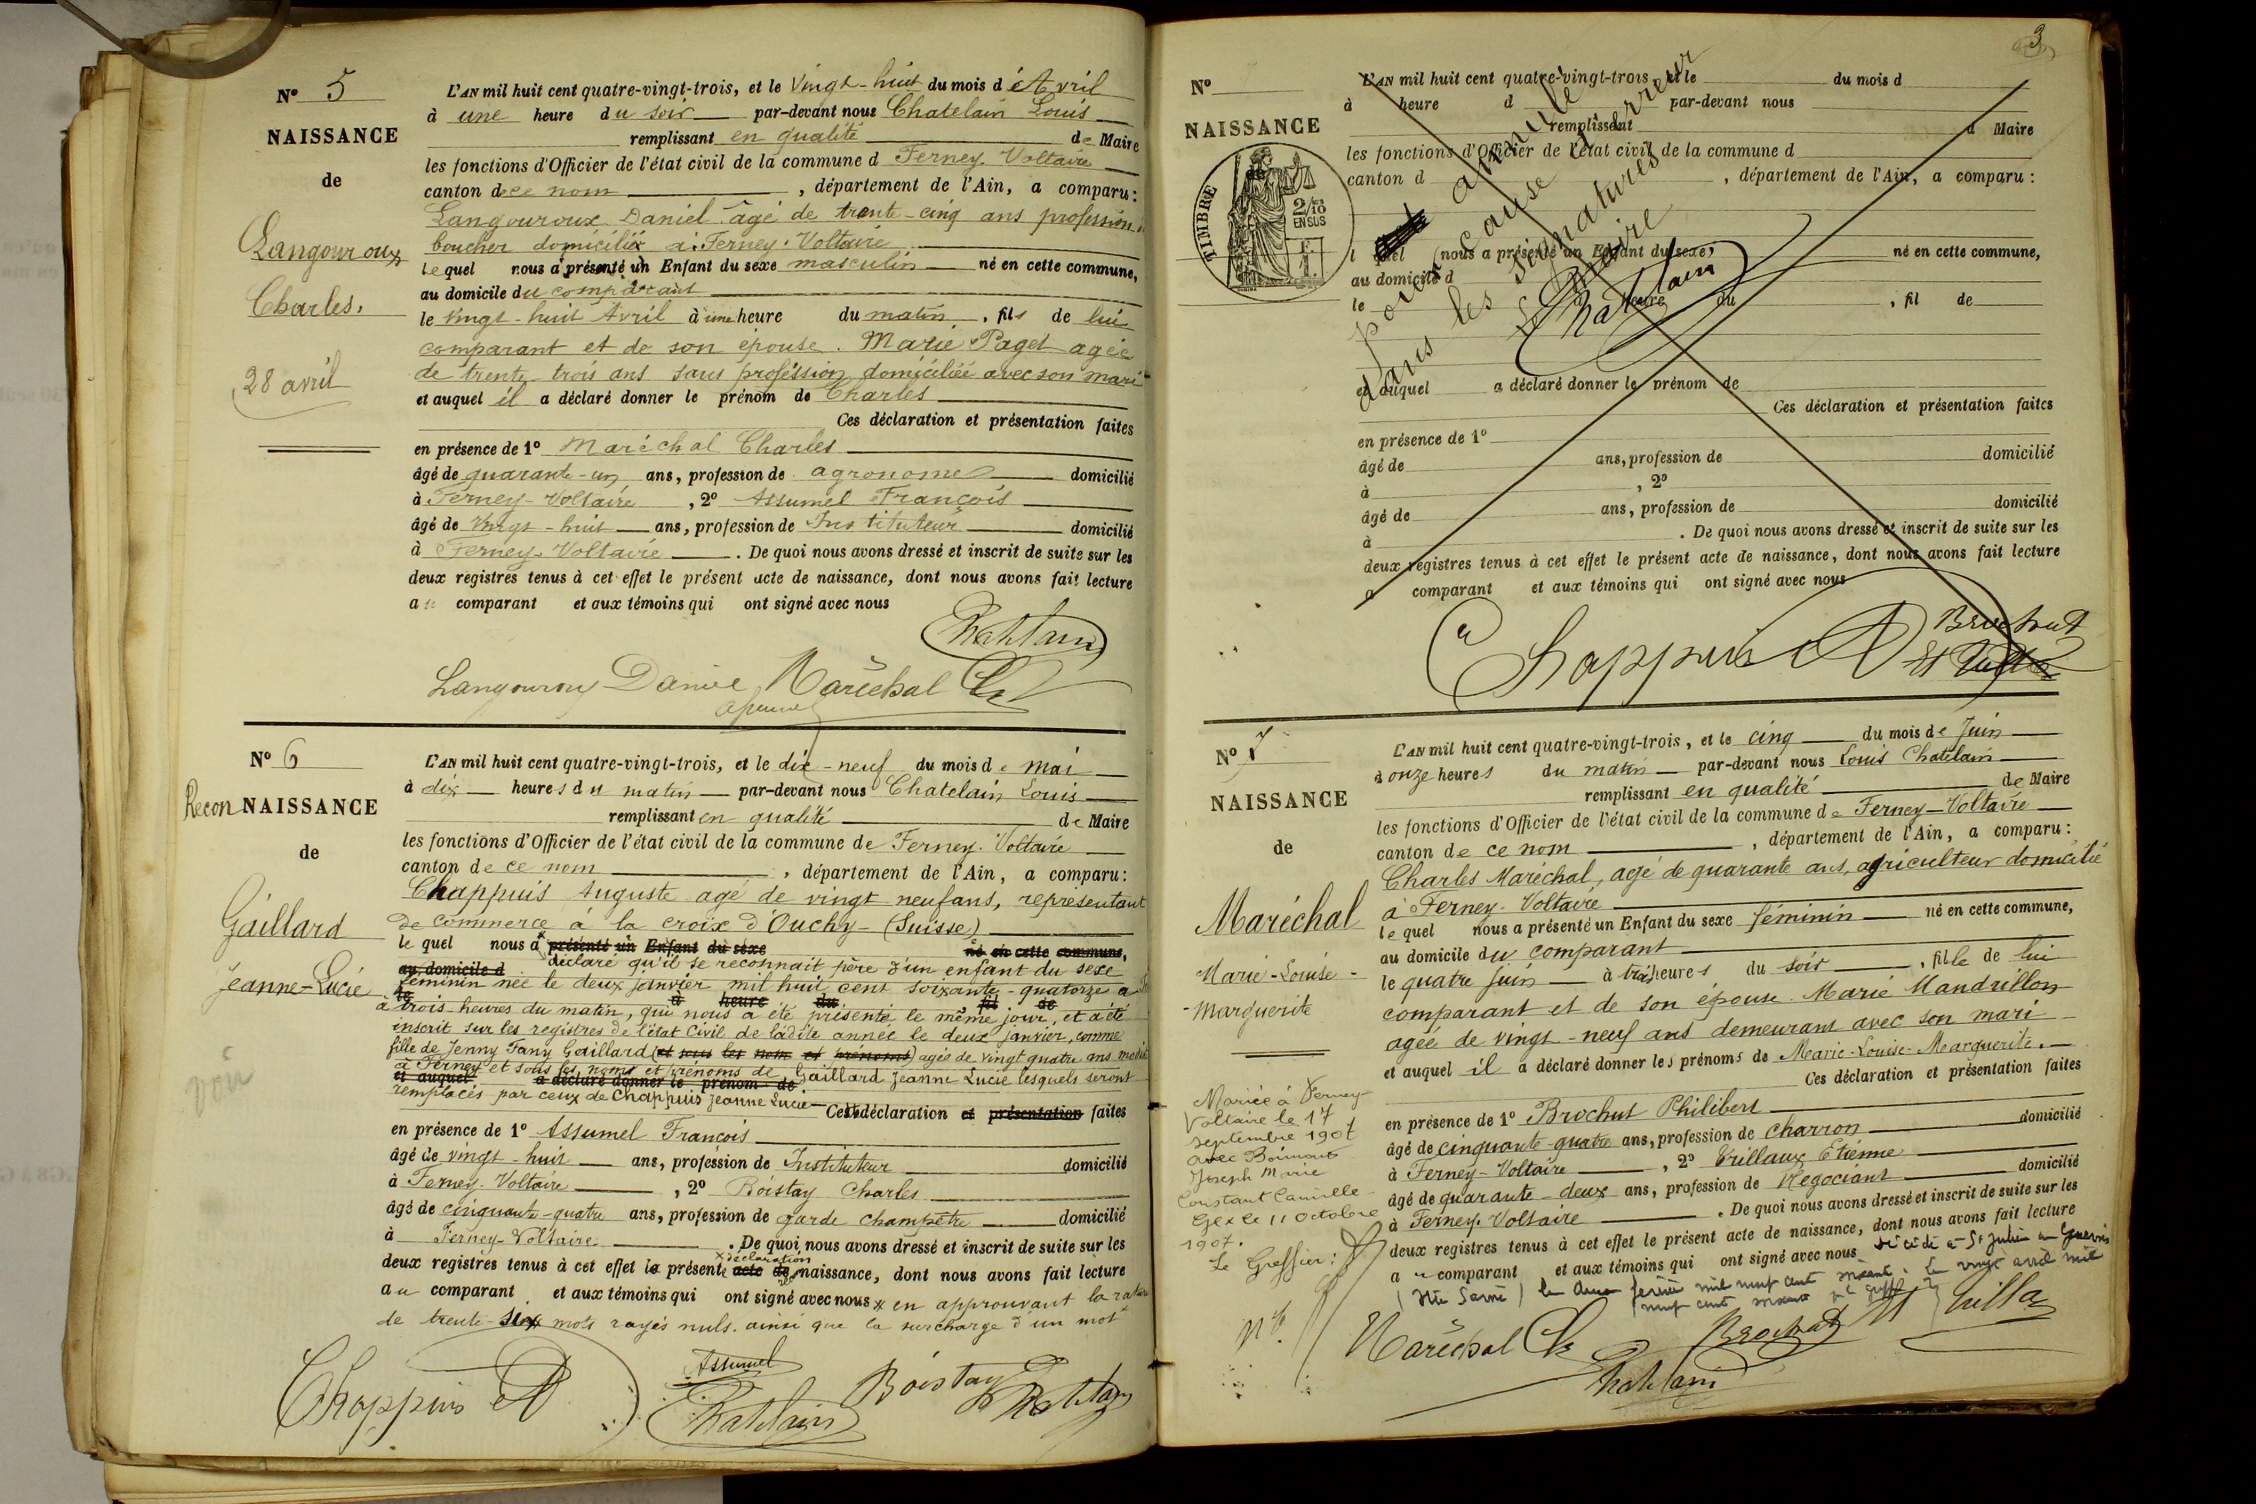 N° 5
NAISSANCE
de
Langouroux
Charles.
28 avril
L'AN mil huit cent quatre-vingt-trois, et le Vingt-huit du mois d'Avril
à une heure du soir par-devant nous Chatelain Louis
remplissant en qualité de Maire
les fonctions d'Officier de l'état civil de la commune d Ferney-Voltaire
canton de ce nom, département de l'Ain, a comparu:
Langouroux Daniel âgé de trente-cinq ans profession
boucher domicilié à Ferney-Voltaire
lequel nous a présenté un Enfant du sexe masculin né en cette commune,
au domicile du comparant
le vingt-huit Avril à une heure du matin, fils de lui
comparant et de son épouse. Marie Paget agée
de trente trois ans sans profession domiciliée avec son mari
et auquel il a déclaré donner le prénom de Charles
Ces déclaration et présentation faites
en présence de 1° Maréchal Charles
âgé de quarante-un ans, profession de agronome domicilié
à Ferney-Voltaire, 2° Assumel François
âgé de vingt-huit ans, profession de Instituteur domicilié
à Ferney-Voltaire. De quoi nous avons dressé et inscrit de suite sur les
deux registres tenus à cet effet le présent acte de naissance, dont nous avons fait lecture
au comparant et aux témoins qui ont signé avec nous
Chatelain
Langouroux Daniel Maréchal Ch
N° 6
Recon NAISSANCE
de
Gaillard
Jeanne-Lucie
voir
L'AN mil huit cent quatre-vingt-trois, et le dix-neuf du mois de mai
à dix heures du matin par-devant nous Chatelain Louis
remplissant en qualité de Maire
les fonctions d'Officier de l'état civil de la commune de Ferney-Voltaire
canton de ce nom, département de l'Ain, a comparu:
Chappuis Auguste agé de vingt neuf ans, représentant
de commerce à la croix d'Ouchy-(Suisse)
le quel nous a présenté un Enfant du sexe né en cette commune,
au domicile d déclaré qu'il se reconnait père d'un enfant du sexe
féminin née le deux janvier mil huit cent soixante-quatorze a
le à heure du fil de
trois heures du matin, qui nous a été présenté le même jour, et a été
inscrit sur les registres de l'état civil de ladite année le deux janvier, comme
fille de Jenny Fany Gaillard (et sous les nom et prénoms) agée de vingt quatre ans
à Ferney et sous les noms et prénoms de Gaillard Jeanne Lucie lesquels seront
et auquel a déclaré donner le prénom de
remplacés par ceux de Chappuis Jeanne Lucie Cette déclaration et présentation faites
en présence de 1° Assumel François
âgé de vingt-huit ans, profession de Instituteur domicilié
à Ferney-Voltaire, 2° Boistay Charles
âgé de cinquante-quatre ans, profession de garde champêtre domicilié
à Ferney-Voltaire. De quoi nous avons dressé et inscrit de suite sur les
x déclaration
deux registres tenus à cet effet la présente acte de naissance, dont nous avons fait lecture
au comparant et aux témoins qui ont signé avec nous x en approuvant la rature
de trente-six mots rayés nuls. ainsi que la surcharge d'un mot
Chappuis A Assumel Chatelain Boistay Chatelain
3
N°
NAISSANCE
TIMBRE
2/10
EN SUS
L'AN mil huit cent quatre-vingt-trois et le du mois d
à heure d par-devant nous
remplissant d Maire
les fonctions d'Officier de l'état civil de la commune d
canton d, département de l'Ain, a comparu:
l quel nous a présenté un Enfant du sexe né en cette commune,
au domicile d
le à heure du, fil de
et auquel a déclaré donner le prénom de
Ces déclaration et présentation faites
en présence de 1°
âgé de ans, profession de domicilié
à, 2°
âgé de ans, profession de domicilié
à. De quoi nous avons dressé et inscrit de suite sur les
deux registres tenus à cet effet le présent acte de naissance, dont nous avons fait lecture
a comparant et aux témoins qui ont signé avec nous
annulé
pour cause d'erreur
dans les signatures
Le Maire
Chatelain
Chappuis A Brochut
N° 7
NAISSANCE
de
Maréchal
Marie-Louise-
Marguerite
Mariée à Ferney-
Voltaire le 17
septembre 1907
avec
Joseph Marie
Constant Camille
Gex le 11 Octobre
1907.
Le Greffier:
L'AN mil huit cent quatre-vingt-trois, et le cinq du mois de Juin
à onze heures du matin par-devant nous Louis Chatelain
remplissant en qualité de Maire
les fonctions d'Officier de l'état civil de la commune de Ferney-Voltaire
canton de ce nom, département de l'Ain, a comparu:
Charles Maréchal, agé de quarante ans, agriculteur domicilié
à Ferney-Voltaire
lequel nous a présenté un Enfant du sexe féminin né en cette commune,
au domicile du comparant
le quatre juin à trois heures du soir, fille de lui
comparant et de son épouse Marie Mandrillon
agée de vingt-neuf ans demeurant avec son mari
et auquel il a déclaré donner les prénoms de Marie-Louise-Marguerite.
Ces déclaration et présentation faites
en présence de 1° Brochut Philibert
âgé de cinquante-quatre ans, profession de charron domicilié
à Ferney-Voltaire, 2° Trillaux Etienne
âgé de quarante-deux ans, profession de Négociant domicilié
à Ferney-Voltaire. De quoi nous avons dressé et inscrit de suite sur les
deux registres tenus à cet effet le présent acte de naissance, dont nous avons fait lecture
au comparant et aux témoins qui ont signé avec nous décédé à St Julien en Genevois
(Hte Savoie) le deux février mil neuf cent soixante. le vingt avril mil
neuf cent soixante
Maréchal Ch Brochut
Chatelain